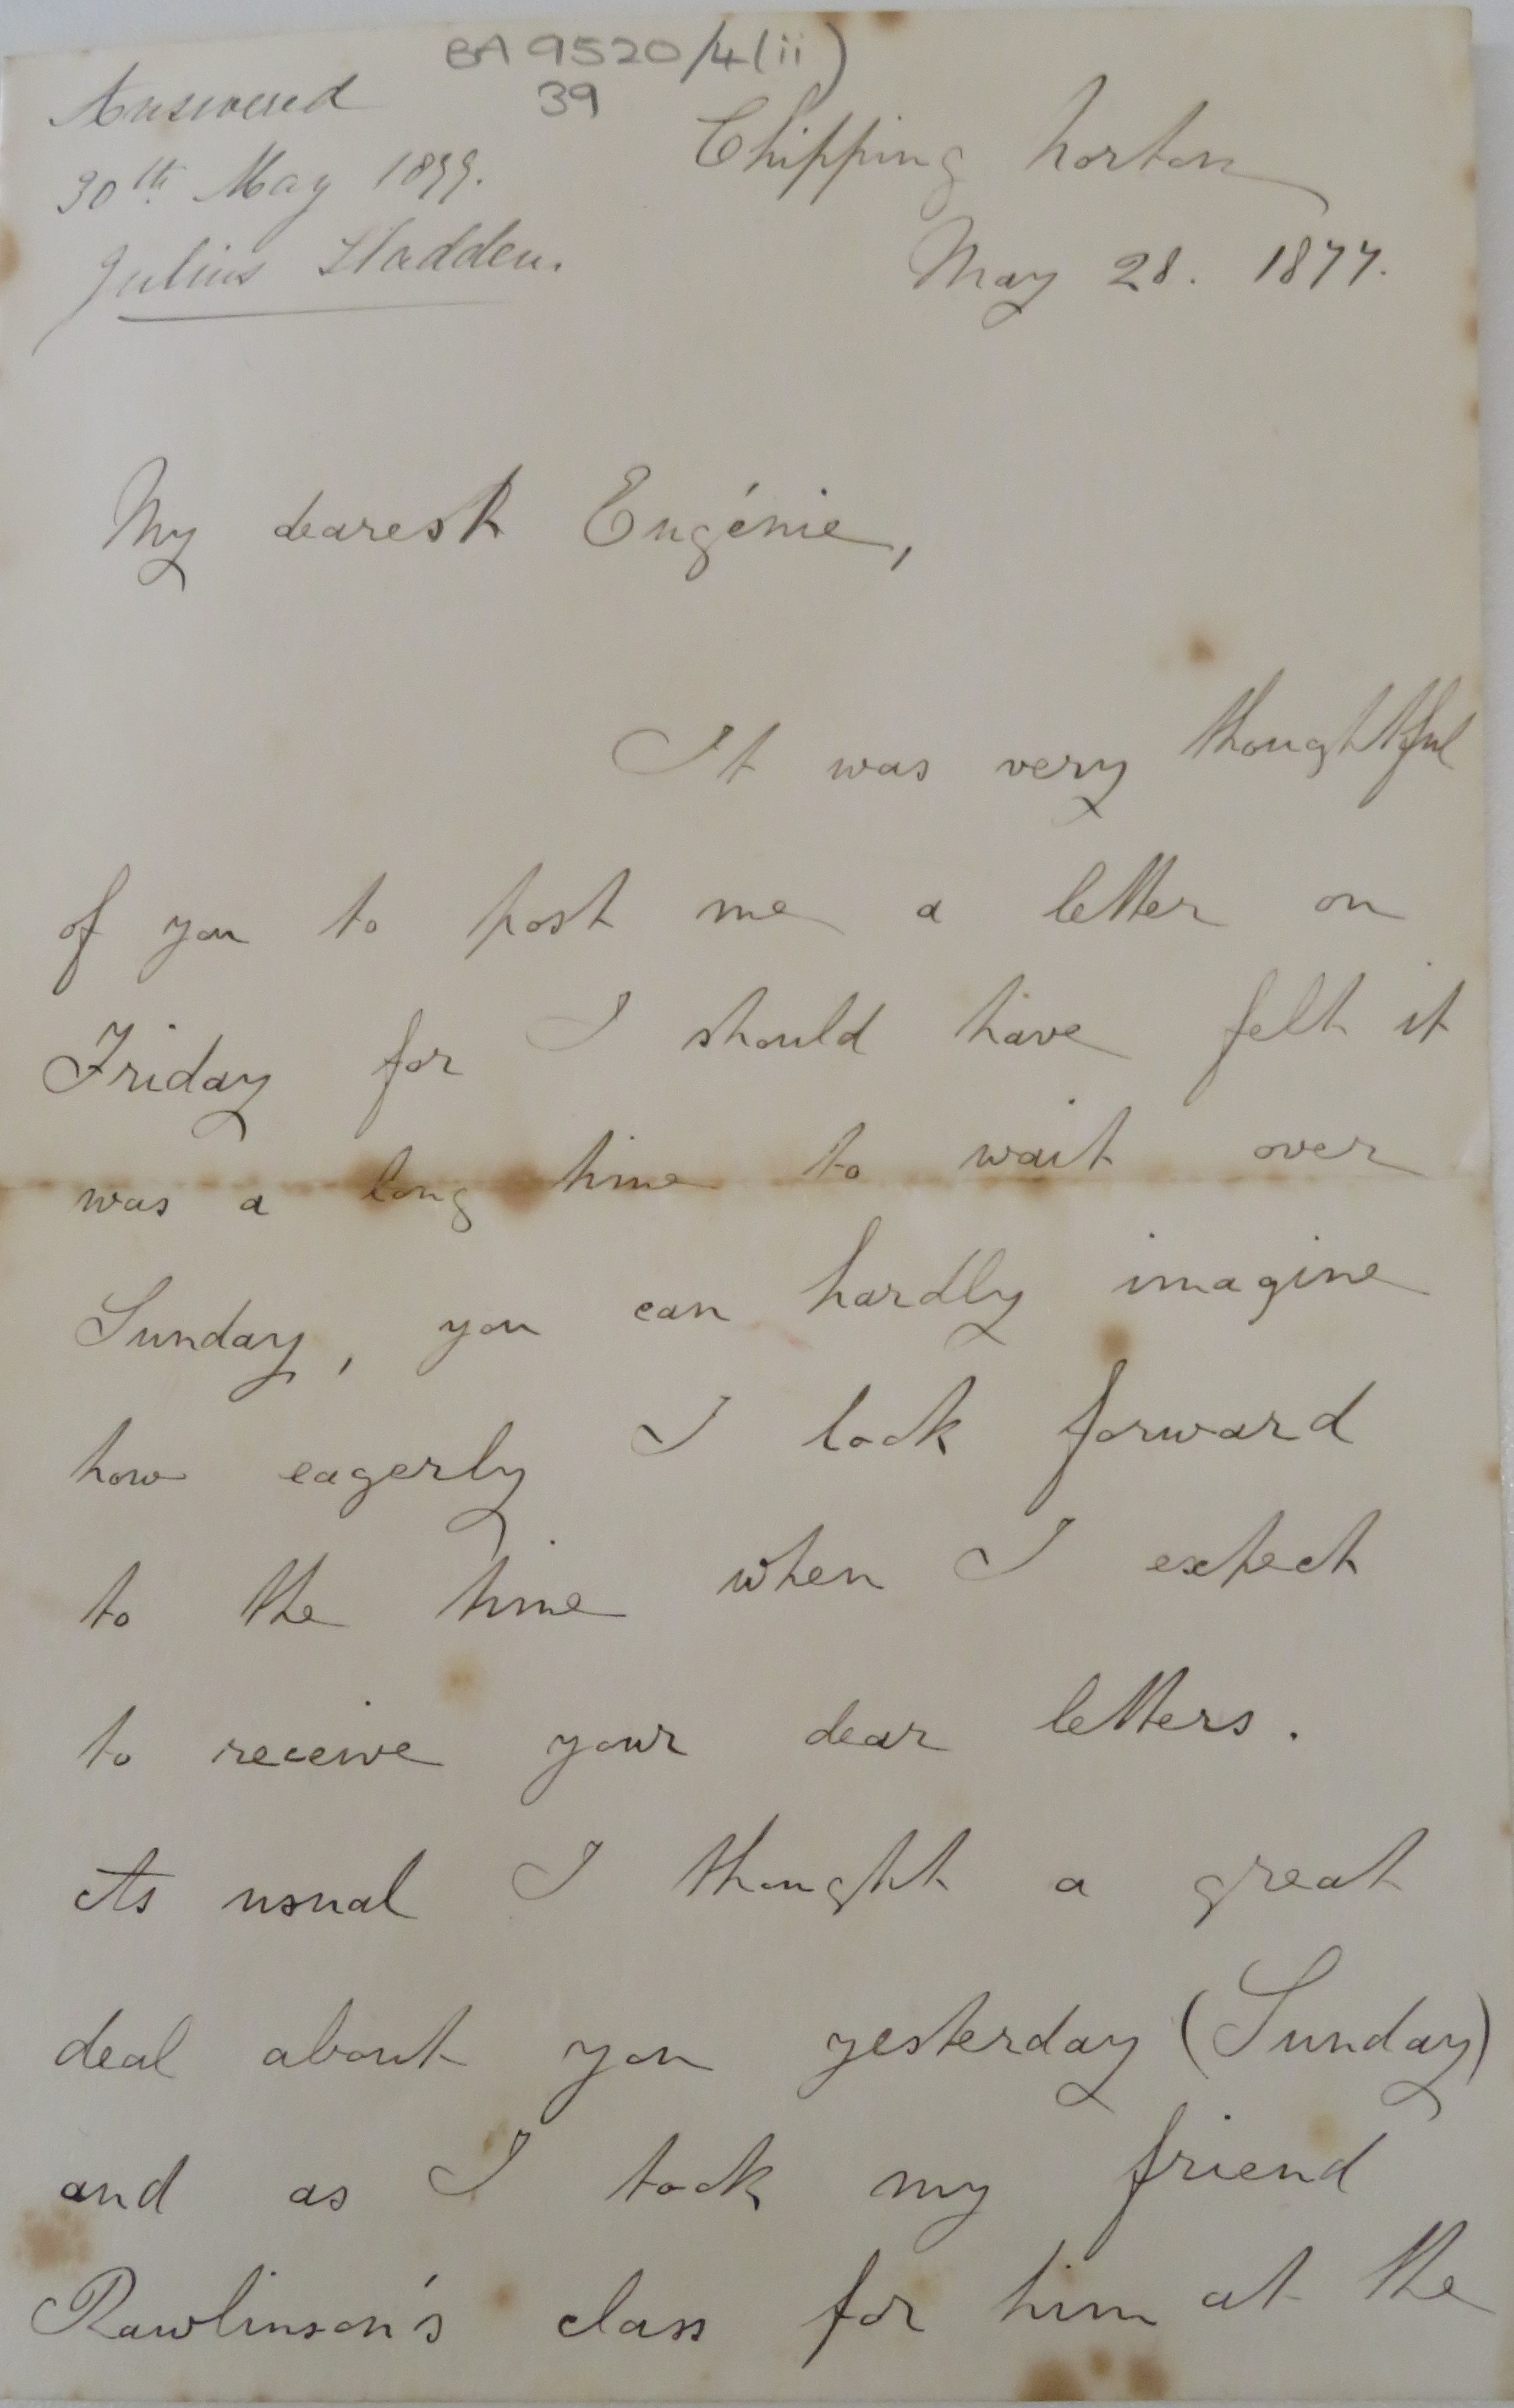 BA 9520/4(ii)
39
Answered
30th May 1877.
Julius Sladden.
Chipping Norton
May 28. 1877.
My dearest Eugénie,
It was very thoughtful
of you to post me a letter on
Friday for I should have felt it
was a long time to wait over
Sunday, you can hardly imagine
how eagerly I look forward
to the time when I expect
to receive your dear letters.
As usual I thought a great
deal about you yesterday (Sunday)
and as I took my friend
Rawlinson's class for him at the